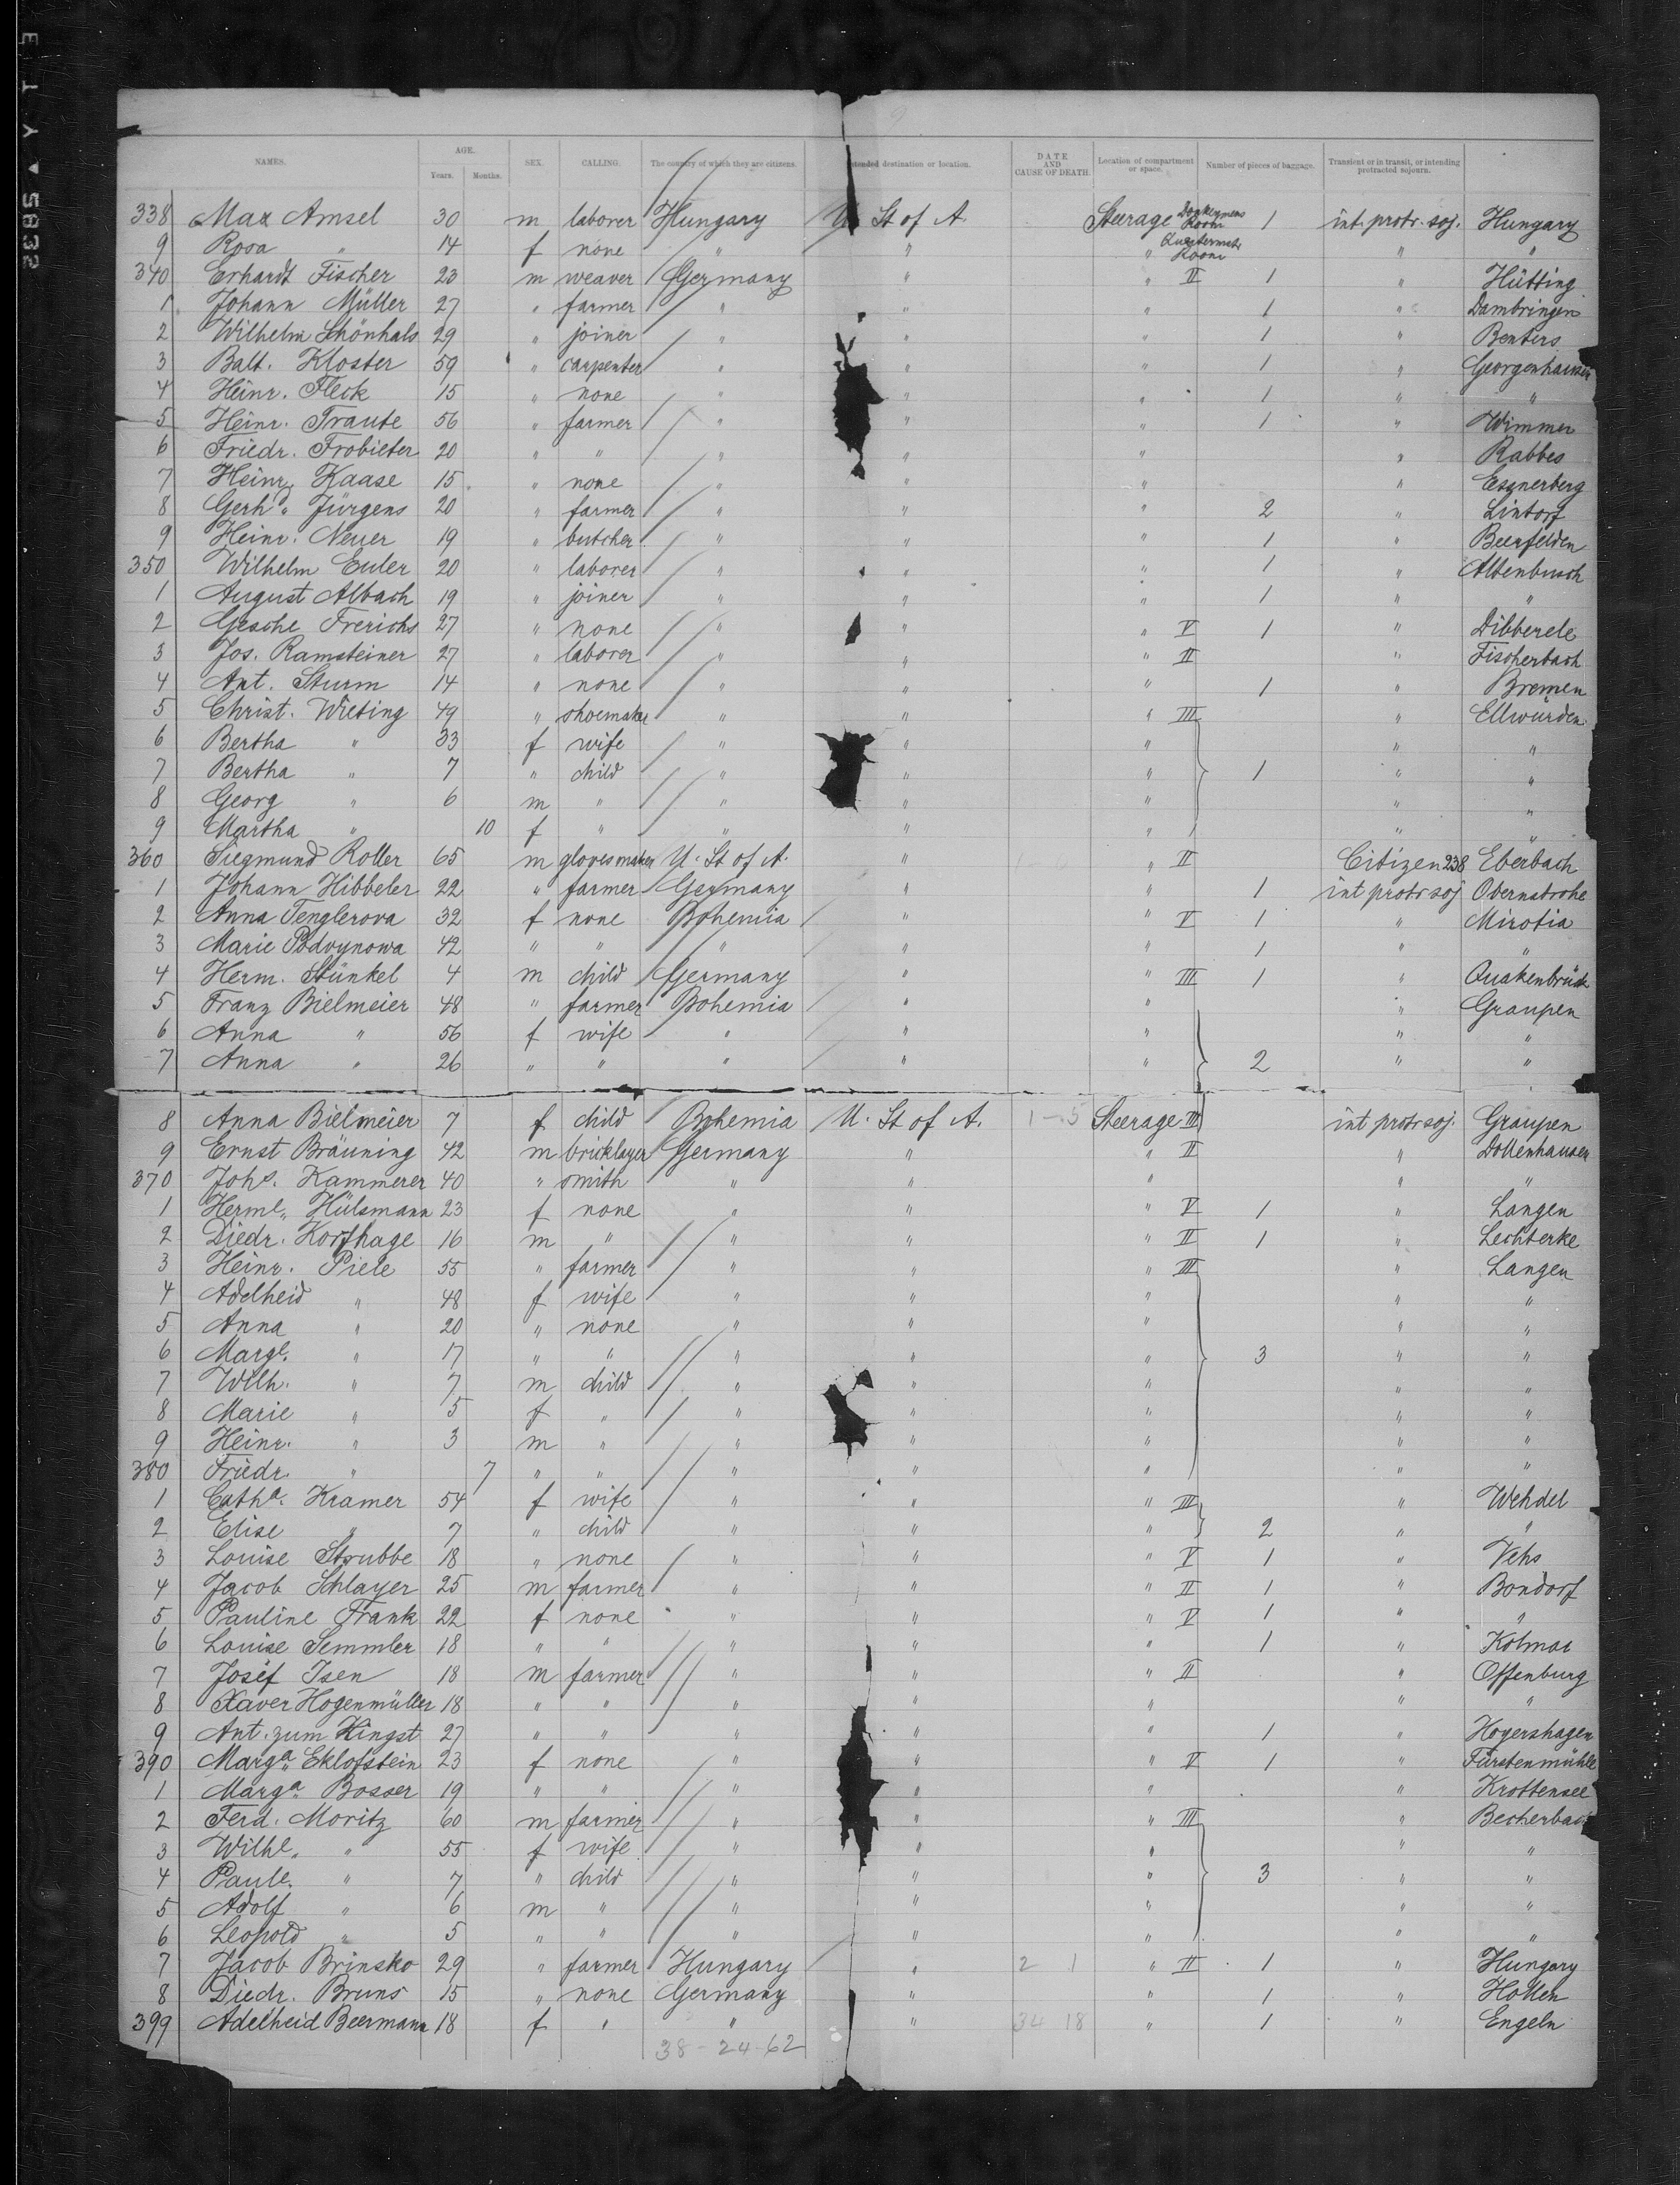 NAMES. AGE. Years. Months. SEX. CALLING. The country of which they are citizens. Intended destination or location. DATE AND CAUSE OF DEATH. Location of compartment or space. Number of pieces of baggage. Transient or in transit, or intending protracted sojourn.
338 Max Amsel 30 m laborer Hungary U. St of A. Steerage Room 1 int. protr. soj. Hungary
9 Rosa " 14 f none " " " Room " "
340 Erhardt Fischer 23 m weaver Germany " " II 1 " Hütting
1 Johann Müller 27 " farmer " " " 1 " Dambringen
2 Wilhelm Schönhals 29 " joiner " " " 1 " Benters
3 Balt. Kloster 59 " carpenter " " " 1 " Georgenhausen
4 Heinr. Fleck 15 " none " " " 1 " "
5 Heinr. Traute 56 " farmer " " " 1 " Wimmer
6 Friedr. Frobieter 20 " " " " " " Rabbes
7 Heinr. Kaase 15 " none " " " " Essnerberg
8 Gerhd. Jürgens 20 " farmer " " " 2 " Lintorf
9 Heinr. Neuer 19 " butcher " " " 1 " Beerfelden
350 Wilhelm Euler 20 " laborer " " " 1 " Altenbusch
1 August Albach 19 " joiner " " " 1 " "
2 Gesche Frerichs 27 " none " " " V 1 " Dibberele
3 Jos. Ramsteiner 27 " laborer " " " II " Fischerbach
4 Ant. Sturm 14 " none " " " 1 " Bremen
5 Christ. Wieting 49 " shoemaker " " " III " Ellwürden
6 Bertha " 33 f wife " " " " "
7 Bertha " 7 " child " " " 1 " "
8 Georg " 6 m " " " " " "
9 Martha " 10 f " " " " " "
360 Siegmund Roller 65 m glovesmaker U. St of A. " " II Citizen 238 Eberbach
1 Johann Hibbeler 22 " farmer Germany " " 1 int protr soj Obernstrohe
2 Anna Tenglerova 32 f none Bohemia " " V 1 " Mirotia
3 Marie Podvynowa 42 " " " " " 1 " "
4 Herm. Stünkel 4 m child Germany " " III 1 " Quakenbrück
5 Franz Bielmeier 48 " farmer Bohemia " " " Graupen
6 Anna " 56 f wife " " " " "
7 Anna " 26 " " " " " 2 " "
8 Anna Bielmeier 7 f child Bohemia U. St of A. 1-5 Steerage III int protr soj. Graupen
9 Ernst Bräuning 42 m bricklayer Germany " " II " Dollenhausen
370 Johs. Kammerer 40 " smith " " " " "
1 Herml. Hülsmann 23 f none " " " V 1 " Langen
2 Diedr. Korfhage 16 m " " " " II 1 " Lechterke
3 Heinr. Piele 55 " farmer " " " III " Langen
4 Adelheid " 48 f wife " " " " "
5 Anna " 20 " none " " " " "
6 Marge. " 17 " " " " " 3 " "
7 Wilh. " 7 m child " " " " "
8 Marie " 5 f " " " " " "
9 Heinr. " 3 m " " " " " "
380 Friedr. " 7 " " " " " " "
1 Catha. Kramer 54 f wife " " " III " Wehdel
2 Elise " 7 " child " " " 2 " "
3 Louise Strubbe 18 " none " " " V 1 " Vehs
4 Jacob Schlayer 25 m farmer " " " II 1 " Bondorf
5 Pauline Frank 22 f none " " " V 1 " "
6 Louise Semmler 18 " " " " " 1 " Kolmar
7 Josef Isen 18 m farmer " " " II " Offenburg
8 Xaver Hogenmüller 18 " " " " " " "
9 Ant. zum Hingst 27 " " " " " 1 " Hoyershagen
390 Marga. Eklofstein 23 f none " " " V 1 " Fürstenmühle
1 Marga. Bosser 19 " " " " " " Krottensee
2 Ferd. Moritz 60 m farmer " " " III " Becherbach
3 Wilhe. " 55 f wife " " " " "
4 Paule. " 7 " child " " " 3 " "
5 Adolf " 6 m " " " " " "
6 Leopold " 5 " " " " " " "
7 Jacob Brinsko 29 " farmer Hungary " 2 1 " II 1 " Hungary
8 Diedr. Bruns 15 " none Germany " " 1 " Hollen
399 Adelheid Beermann 18 f " " " 34 18 " 1 " Engeln
38-24-62